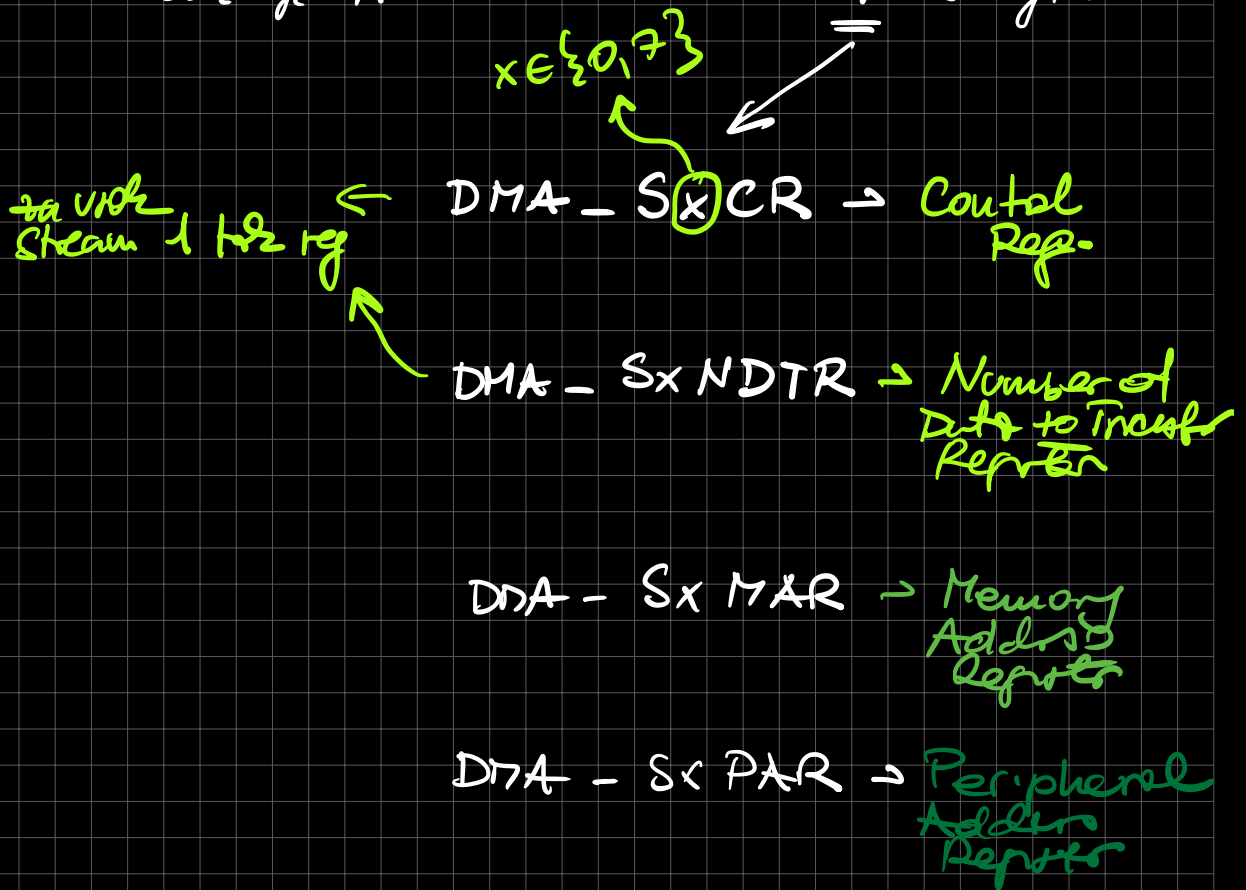 x ∈ {0, 7}
za vsak
stream 1 tak reg
← DMA_SxCR → Control
Reg.
DMA_SxNDTR → Number of
Data to Transfer
Register
DMA_SxMAR → Memory
Address
Register
DMA_SxPAR → Peripheral
Address
Register